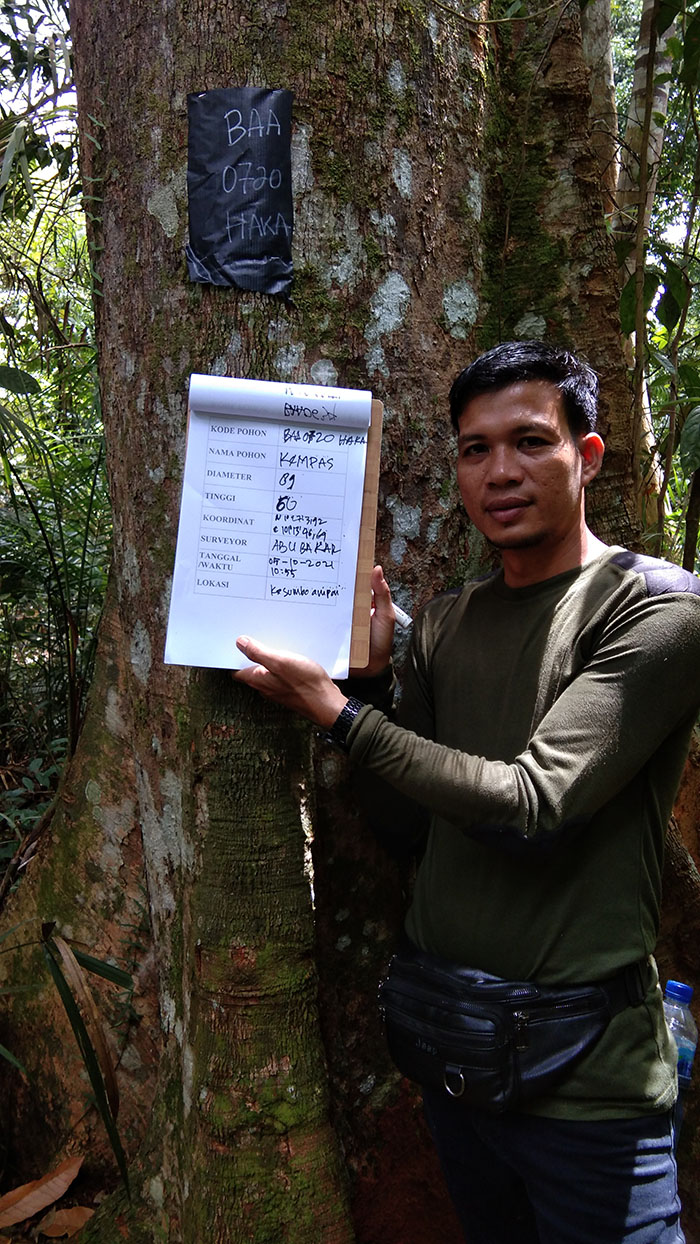 BAA
0720
HAKA
KODE POHON BAA0720 HAKA
NAMA POHON KEMPAS
DIAMETER 89
TINGGI 50
KOORDINAT
SURVEYOR ABU BAKAR
TANGGAL 05-10-2021
/WAKTU 10:55
LOKASI Kesumbo ampai